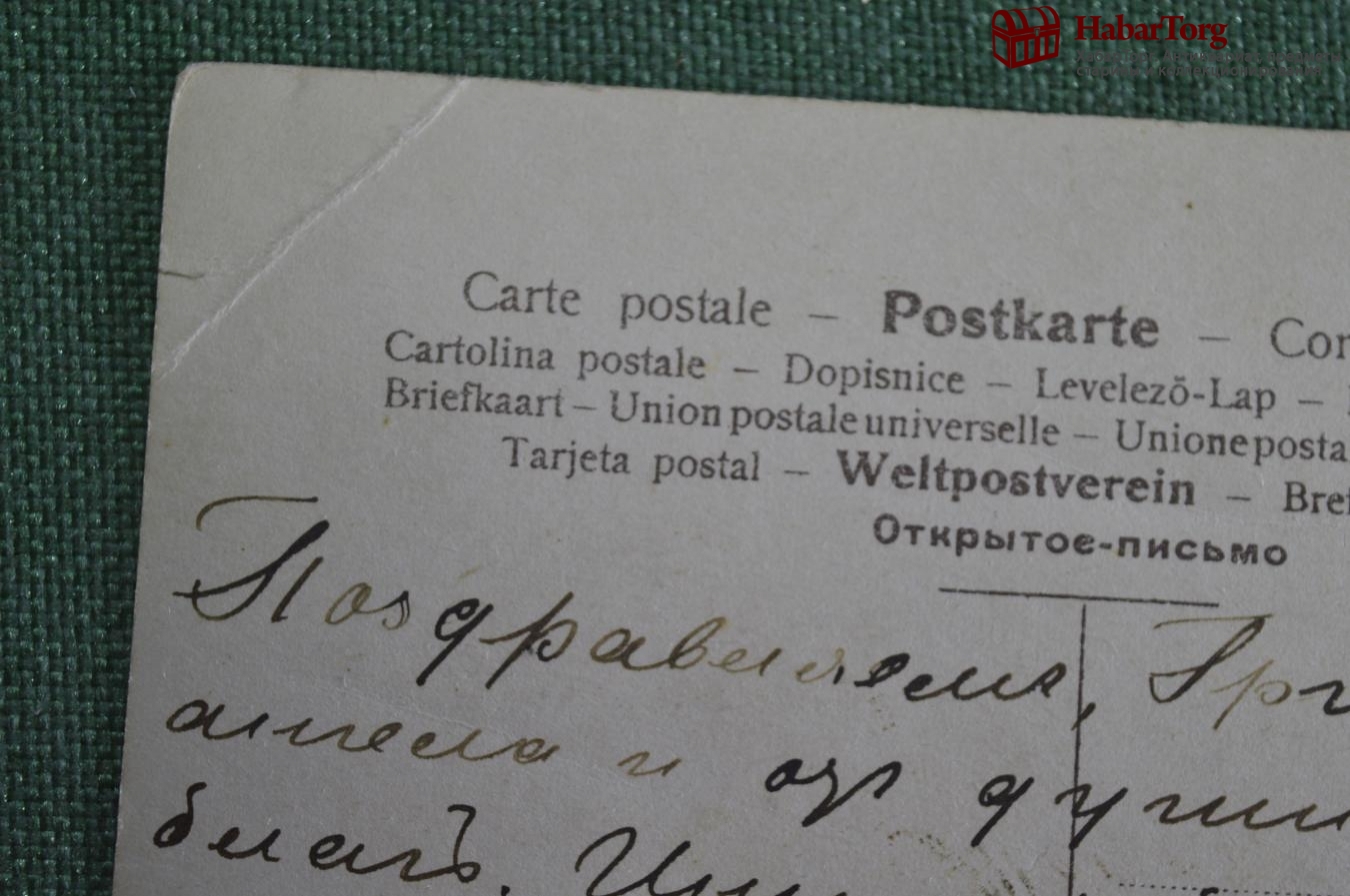 HabarTorg
Carte postale – Postkarte – Cor
Cartolina postale – Dopisnice – Levelező-Lap –
Briefkaart – Union postale universelle – Unione posta
Tarjeta postal – Weltpostverein – Bref
Открытое-письмо
Поздравляемъ,
ангела и от души
благъ.